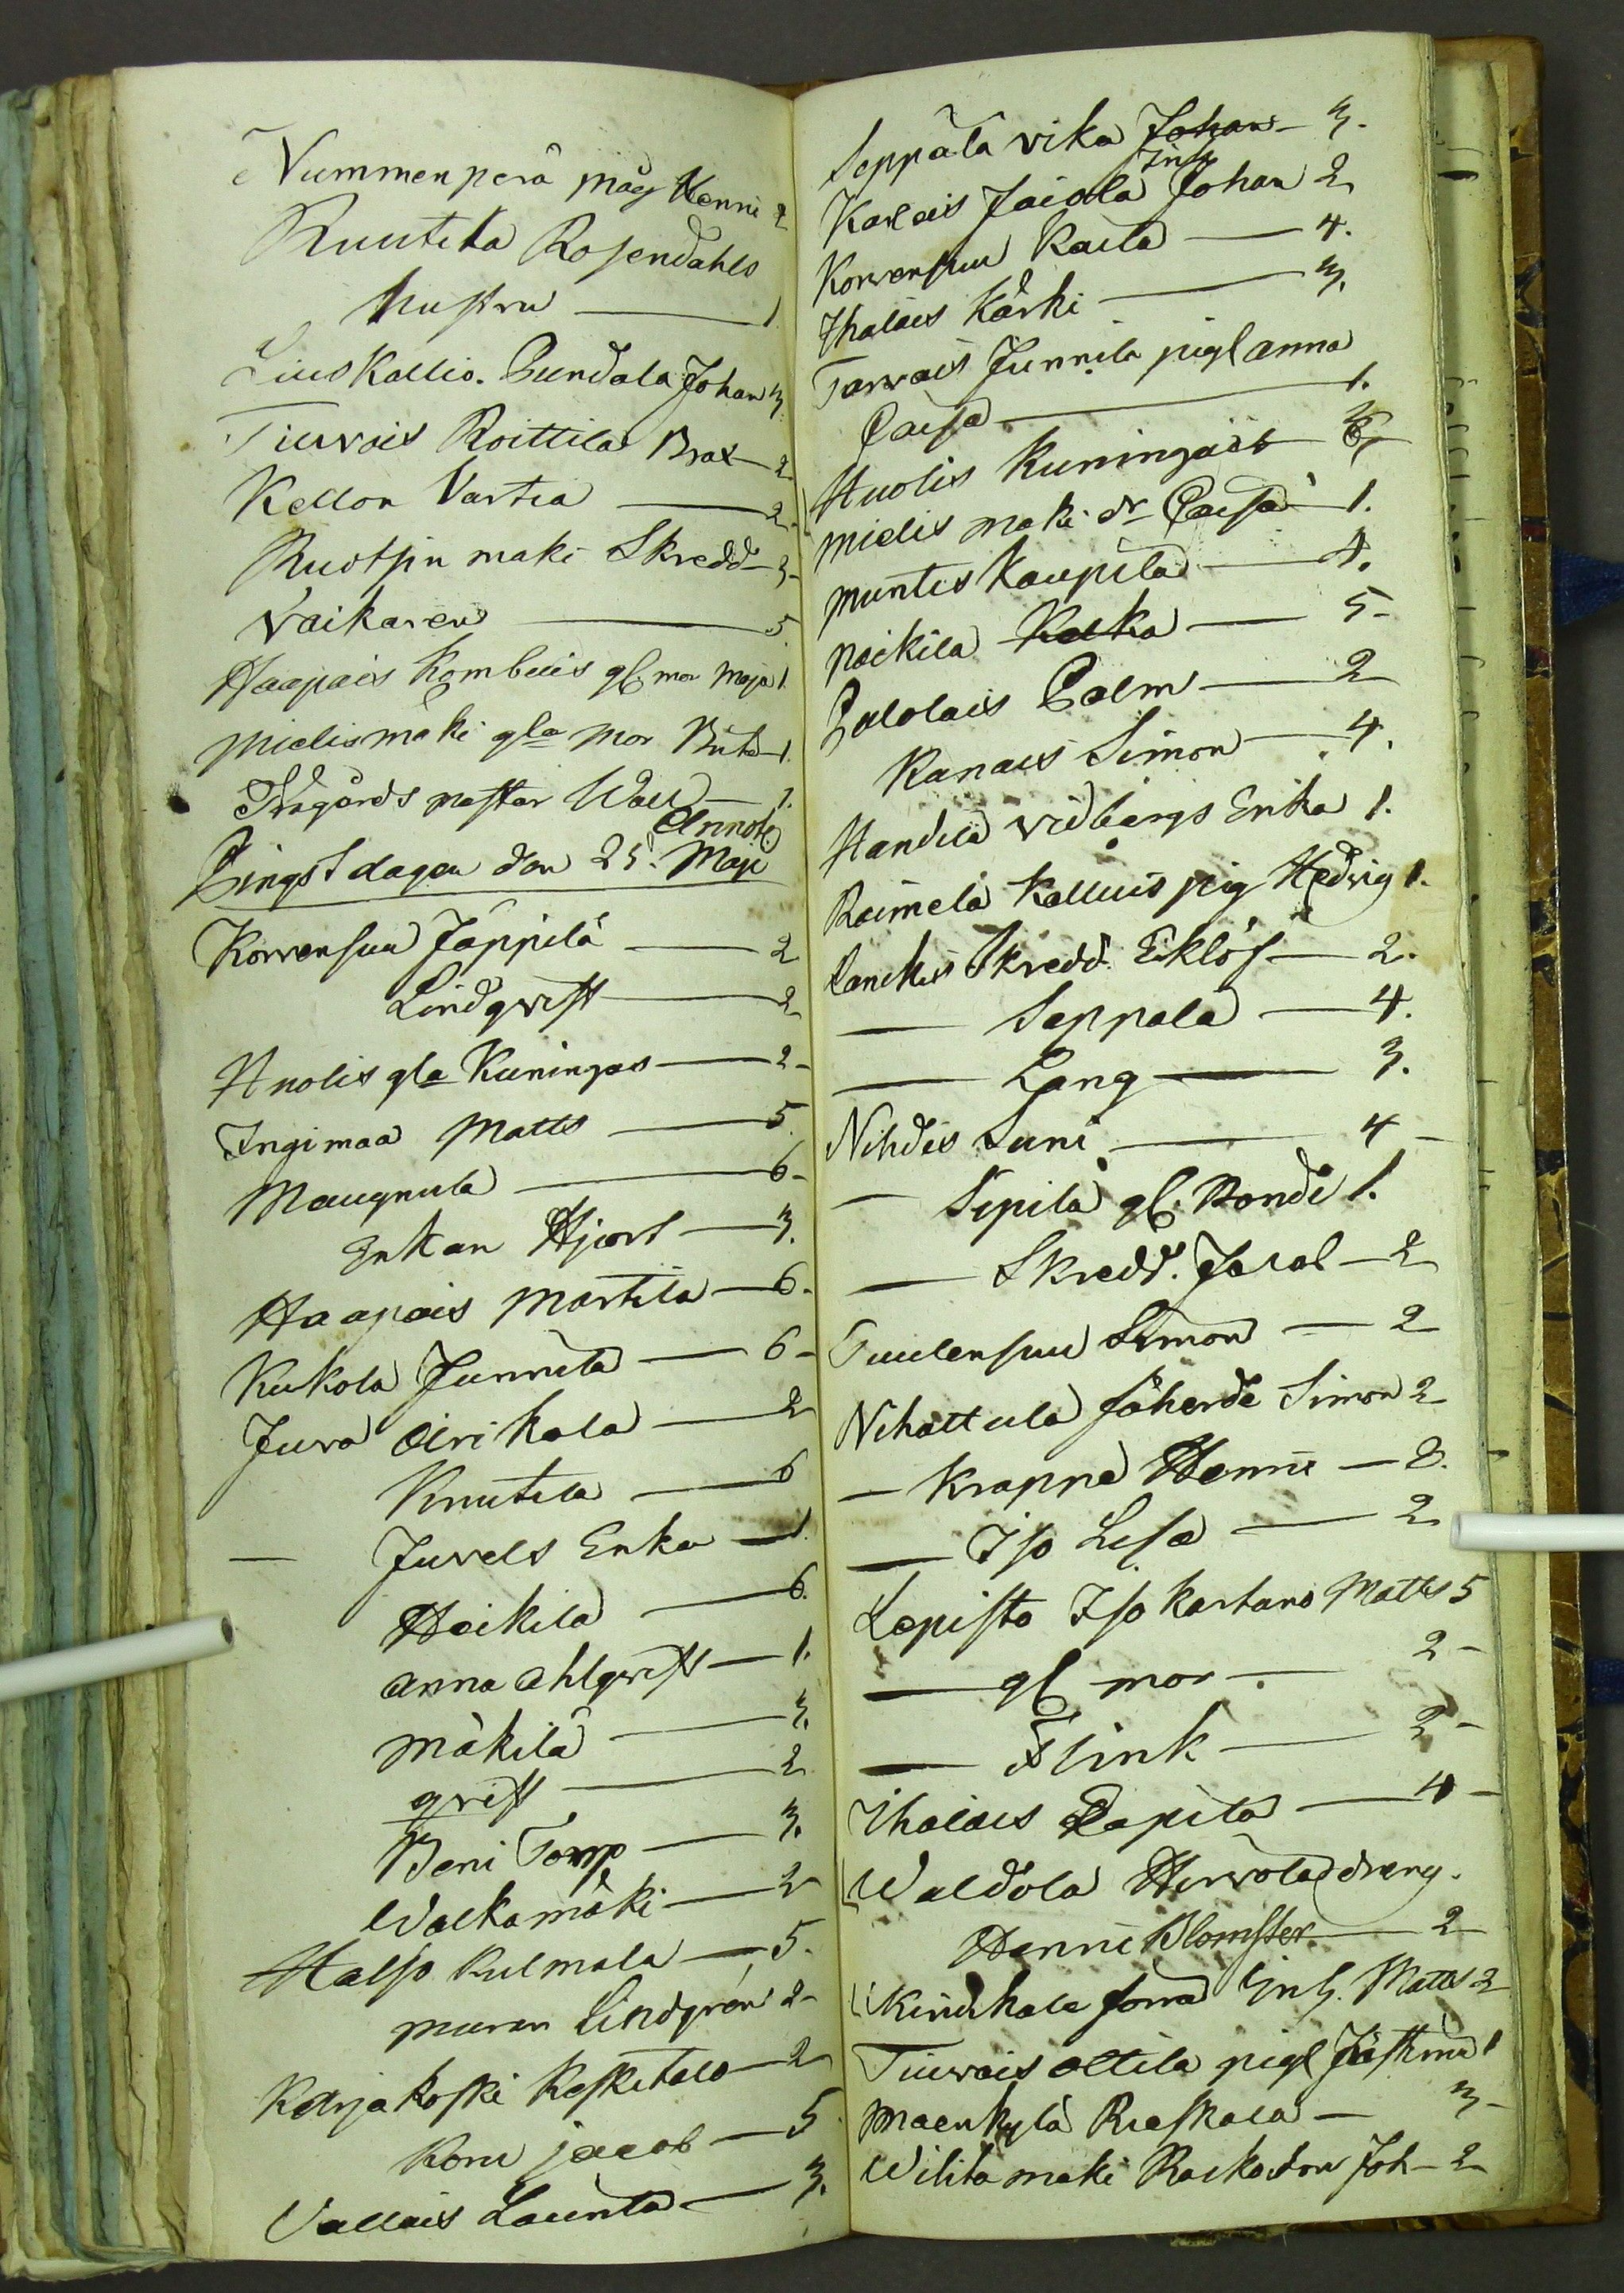 Nummenperä måg Henni 2
Ruutila Rosendahls
hustru — 1
Liuskallio. Pundala Johan 3
Tiuvais Roittila Brax — 2
Kellon Vartia — 2
Ruotsin maki Skredd — 3
Vaikaren — 5
Haapais Kombeis gl. mor Maja 1.
Mielismaki gla mor Brita — 1.
Trägårds mästar Wall — 1.
Annote.
Pingst dagen den 25. Maji
Korrensuu Jäppilä — 2
Lindqvist — 2
Huolis gla Kuningas — 2 -
Ingimaa Matts — 5
Maugnula — 6 -
Enkan Hjort — 3.
Haapais Martila — 6.
Kukola Junnila — 6 -
Juva Oirikala — 2
Knutila — 6
— Juvels Erika — 1.
Heikila — 6.
Anna Ahlqvist — 1.
Mäkilä — 3.
qvist — 2
Beni Tomp — 3.
Walkamäki — 2
Halso Kulmala — 5.
muran Lindgrén 2 -
Karjakoski Keskitalo — 2
Koru jacob — 5
Vallais Launila — 3.
Seppälä vika Johan — 3.
Inh
Karlais Jaiola Johan 2
Korvensuu Raita — 4.
Ihalais Kärki — 3.
Tarvais Junnila pigl anna
Caisa — 1.
Huolis Kuningais
mielis maki dr Caisa 1.
muntis Kaupila — 4.
Paikila Kalka — 5 -
Palolais Palm — 2
Kanais Simon — 4.
Handila vidbergs Erika 1.
Raimela Kalluis pig Hedvig 1.
Lanckis Skredd. Eklöf — 2.
— Seppala — 4.
— Lang — 3.
Nihdis Suni — 4 -
— Sipilä gl. Bonde 1.
— Skredd. Jacob — 2
Tuulensuu Simon — 2
Nihattula fåherde Simon 2
— Krappe Henric — 2.
— Iso Lisa — 2
Lepisto Iso kartano Matts 5
— gl mor — 2 -
— Flink — 2 -
Ihalais Papila — 4 -
Waldola Hervola dreng.
Henric Blomster — 2
Kinikala forra Inh. Matts 2
Tiuvais Ollila pigl Justina 1
Maenkylä Rieskala — 3 -
Wilila maki Raskadon Joh — 2